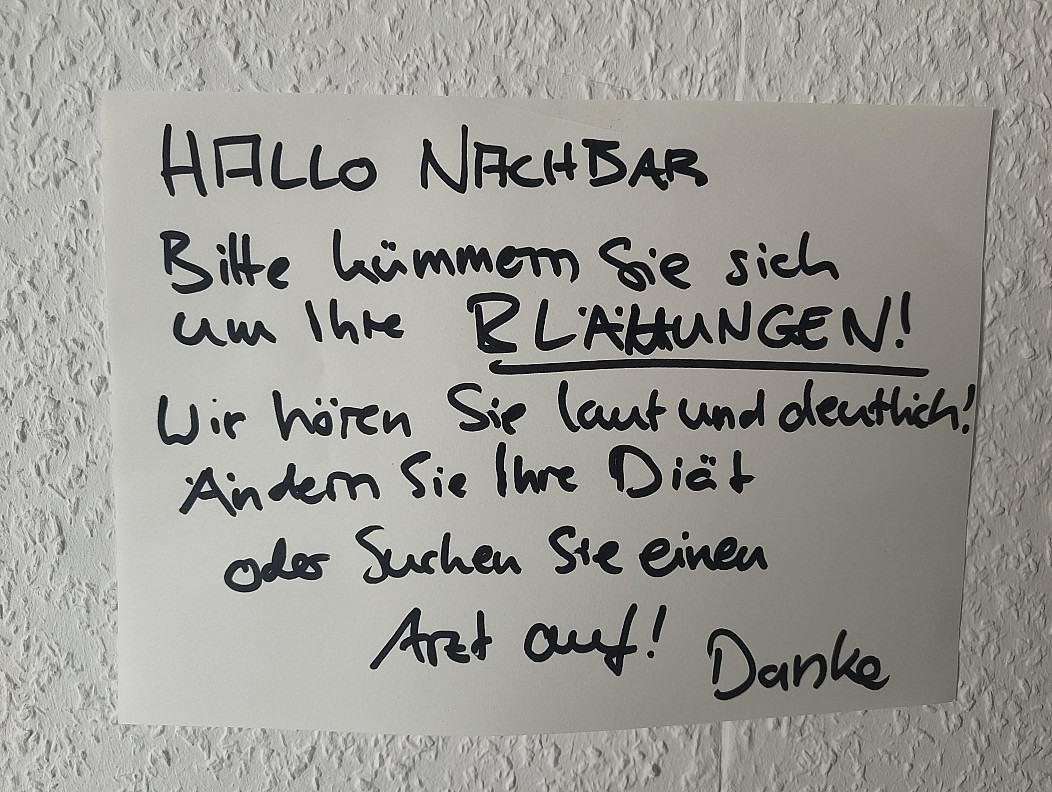 HALLO NACHBAR
Bitte kümmern Sie sich
um Ihre BLÄHUNGEN!
Wir hören Sie laut und deutlich!
Ändern Sie Ihre Diät
oder Suchen Sie einen
Arzt auf!
Danke